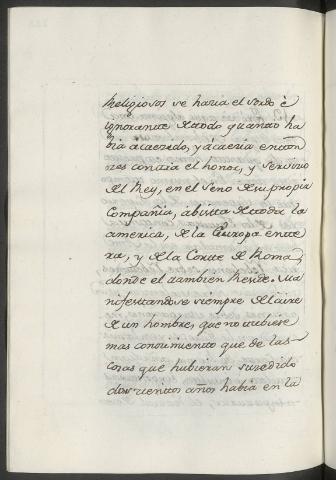 Religiosos se haria el sordo è
ignorante de todo quanto ha
bia acaecido, y acaecia enton
ces contra el honor, y servicio
del Rey, en el seno de su propia
Compañia, â vista de toda la
america, de la Europa ente
ra, y de la Corte de Roma,
donde el tambien Reside. Ma
nifestandose siempre del aire
de un hombre, que no tubiese
mas conocimiento que de las
cosas que hubieran sucedido
doscientos años habia en la